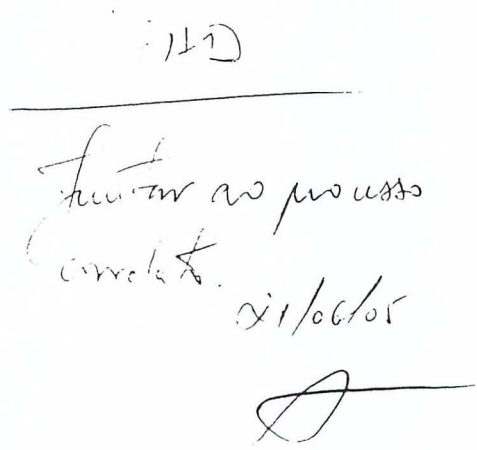 Juntar ao processo
correlato.
21/06/05